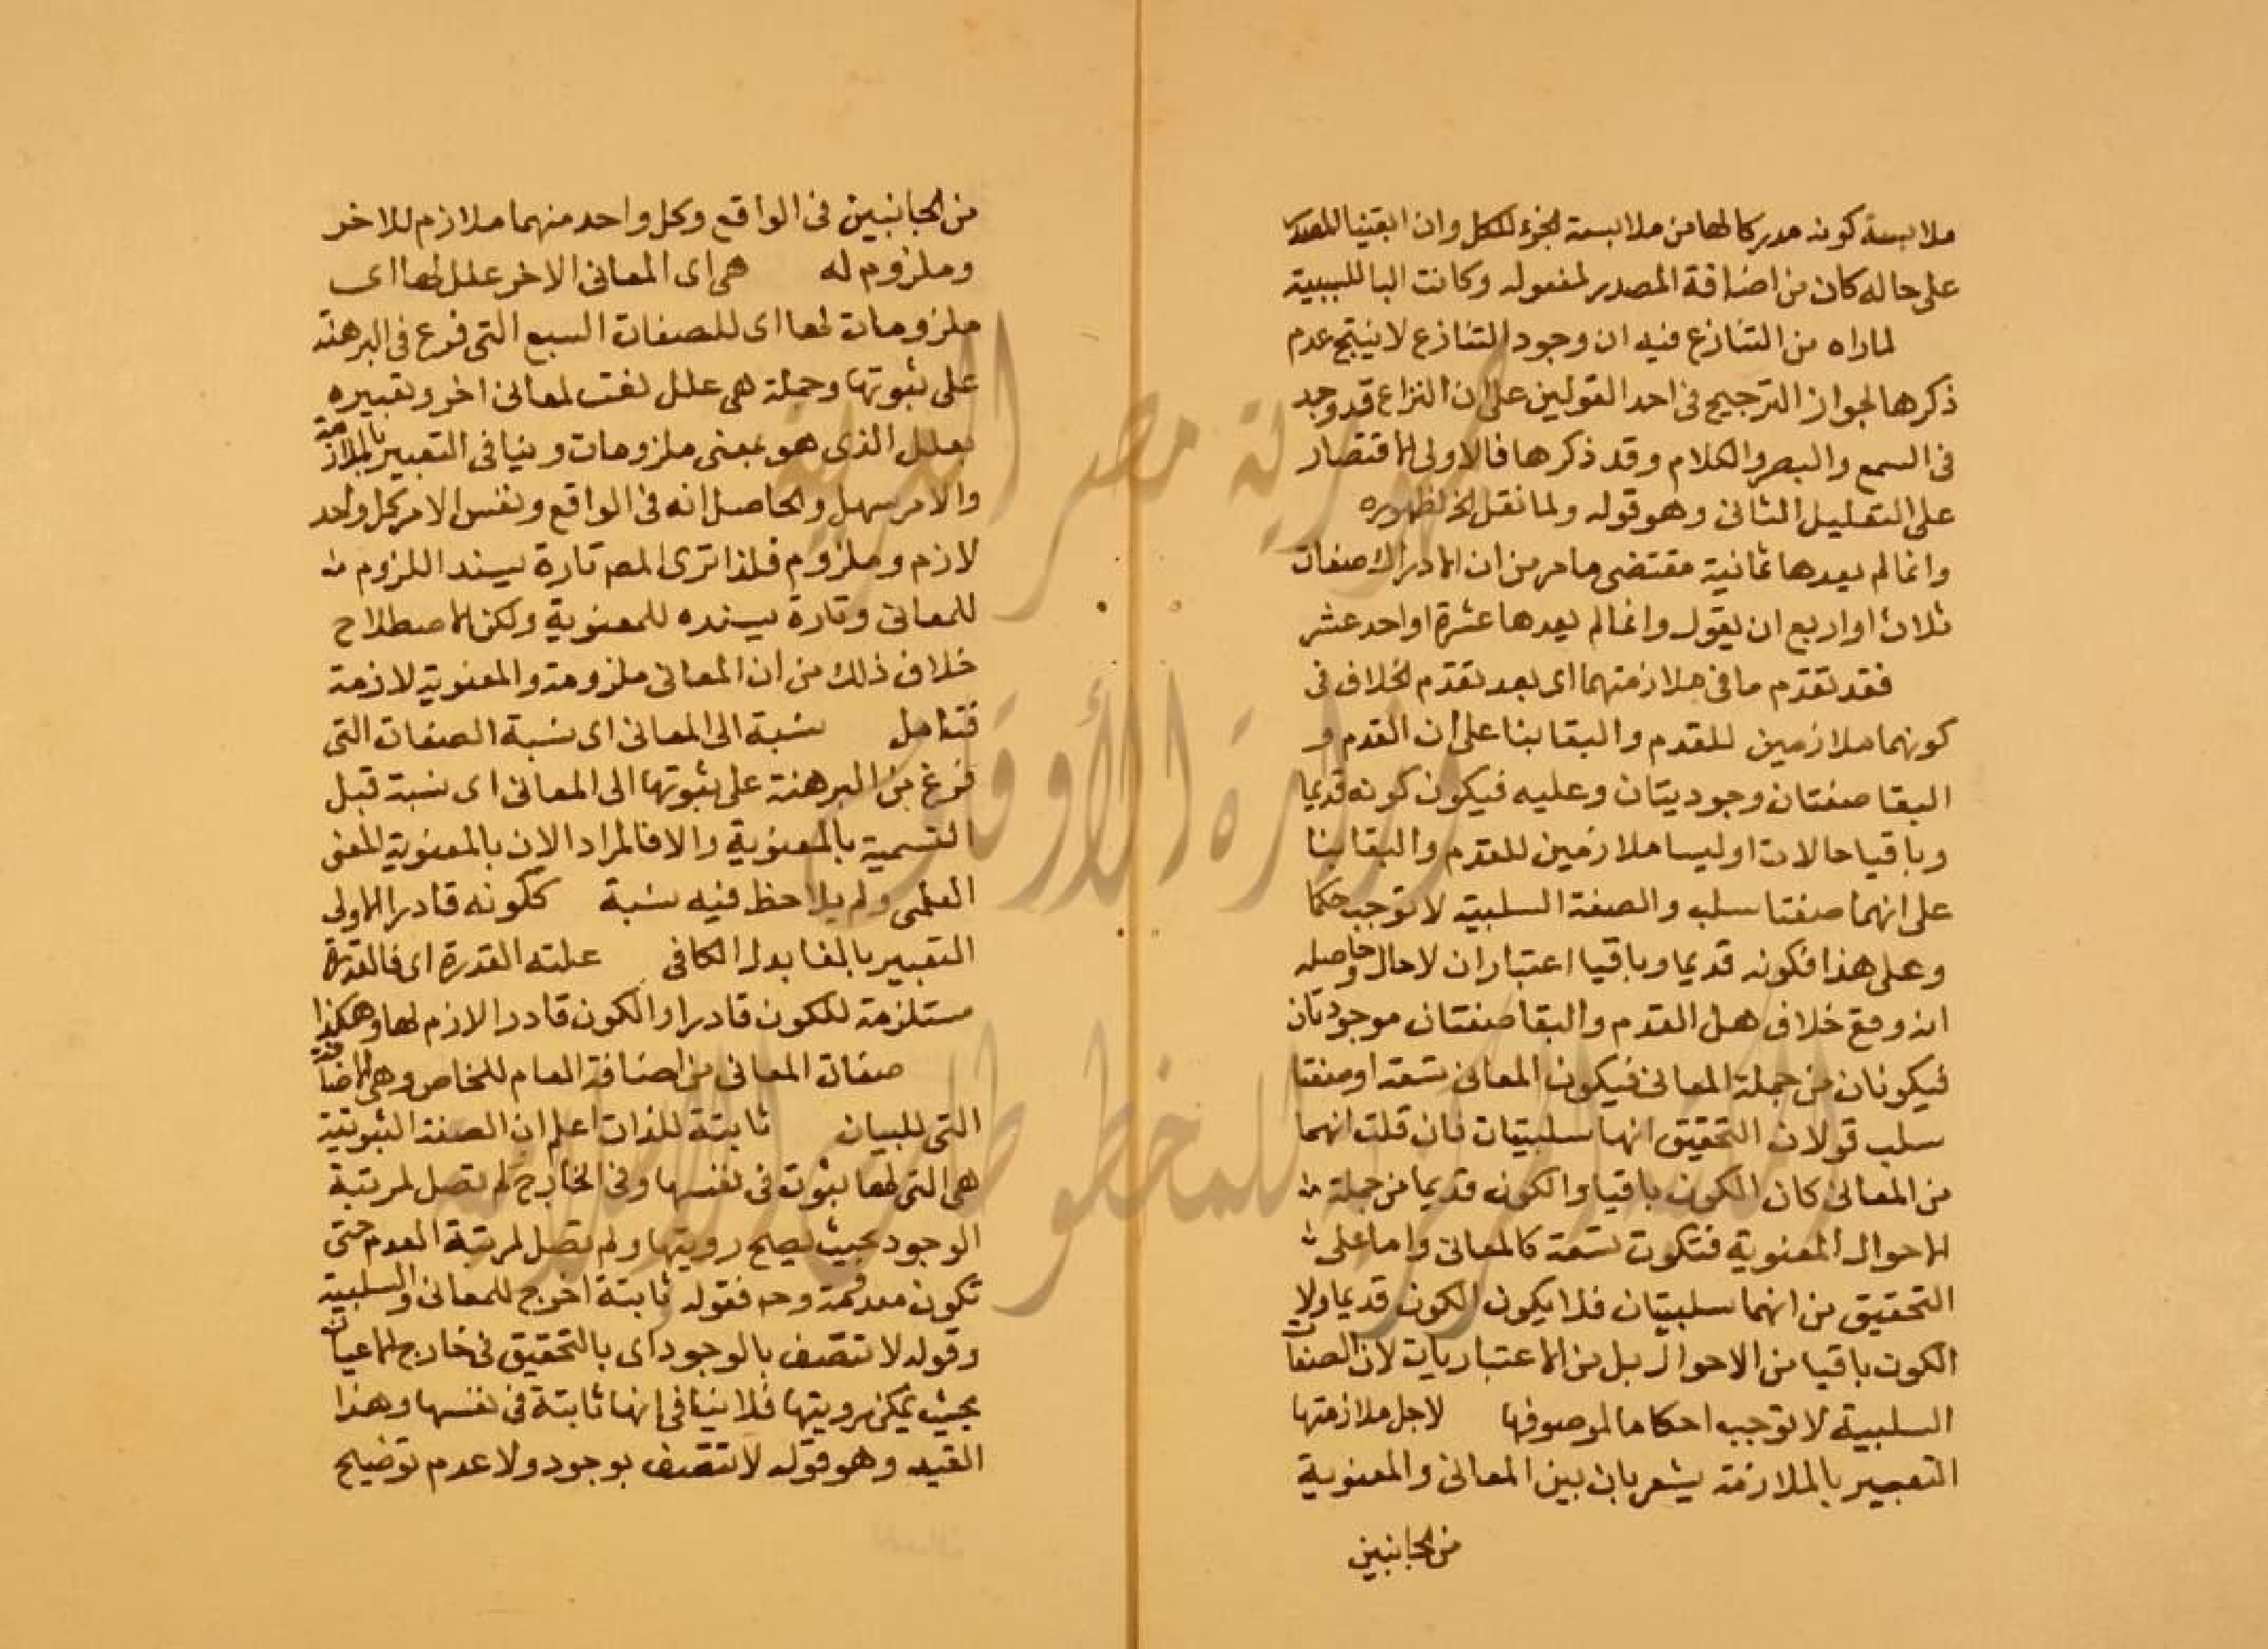 ملابسة كونه مدركا لها من ملابسة الجزء للكل وان ابقينا المصدر
على حاله كان من اضافة المصدر لمفعوله وكانت البا للسببية
لماراه من التنازع فيه ان وجود التنازع لا ينتج عدم
ذكرها لجواز الترجيح فى احد القولين على ان النزاع قد وجد
فى السمع والبصر والكلام وقد ذكرها فالاولى الاقتصار
على التعليل الثانى وهو قوله ولما نقل الخ لظهوره
وانما لم يعدها ثمانية مقتضى ما مر من ان الادراك صفات
ثلاث او اربع ان يقول وانما لم يعدها عشرة او احد عشر
فقد تقدم ما فى ملازمتهما اى بعد تقدم الخلاف فى
كونهما ملازمين للقدم والبقا بنا على ان القدم و
البقا صفتان وجوديتان وعليه فيكون كونه قديما
وباقيا حالات او ليسا ملازمين للقدم والبقا بنا
على انهما صفتا سلب والصفة السلبية لا توجب حكما
وعلى هذا فكونه قديما وباقيا اعتباران لا حال وحاصله
انه وقع خلاف هل القدم والبقا صفتان موجودتان
فيكونان من جملة المعانى فيكون المعانى تسعة او صفتا
سلب قولان التحقيق انهما سلبيتان فان قلت انهما
من المعانى كان الكون باقيا والكون قديما من جملة
الاحوال المعنوية فتكون تسعة كالمعانى واما على
التحقيق من انهما سلبيتان فلا يكون الكون قديما ولا
الكون باقيا من الاحوال بل من الاعتباريات لان الصفات
السلبية لا توجب احكاما لموصوفها لاجل ملازمتها
التعبير بالملازمة يشعر بان بين المعانى والمعنوية
من الجانبين
من الجانبين فى الواقع وكل واحد منهما ملازم للاخر
وملزوم له هى اى المعانى الاخر علل لها اى
ملزومات لها اى للصفات السبع التى فرغ فى البرهنة
على ثبوتها وجملة هى علل نعت لمعانى اخر وتعبيره
بعلل الذى هو بمعنى ملزومات وينافى التعبير بالملازمة
والامر سهل والحاصل انه فى الواقع ونفس الامر كل واحد
لازم وملزوم فلذا ترى المص تارة يسند اللزوم
للمعانى وتارة يسنده للمعنوية ولكن الاصطلاح
خلاف ذلك من ان المعانى ملزومة والمعنوية لازمة
فتامل نسبة الى المعانى اى نسبة الصفات التى
فرغ من البرهنة على ثبوتها الى المعانى اى نسبة قبل
التسمية بالمعنوية والا فالمراد الان بالمعنوية المعنى
العلمى ولم يلاحظ فيه نسبة ككونه قادرا الاولى
التعبير بالفا بدل الكاف علته القدرة اى فالقدرة
مستلزمة للكون قادرا والكون قادرا لازم لها وهكذا
صفات المعانى من اضافة العام للخاص وهى الاضافة
التى للبيان ثابتة للذات اعلم ان الصفة الثبوتية
هى التى لها ثبوت فى نفسها وفى الخارج لم تصل لمرتبة
الوجود بحيث يصح رويتها ولم تصل لمرتبة العدم حتى
تكون معدومة وح فقوله ثابتة اخرج للمعانى والسلبية
وقوله لا تتصف بالوجود اى بالتحقيق فى خارج الاعيان
بحيث يمكن رويتها فلا ينافى انها ثابتة فى نفسها وهذا
القيد وهو قوله لا تتصف بوجود ولا عدم توضيح